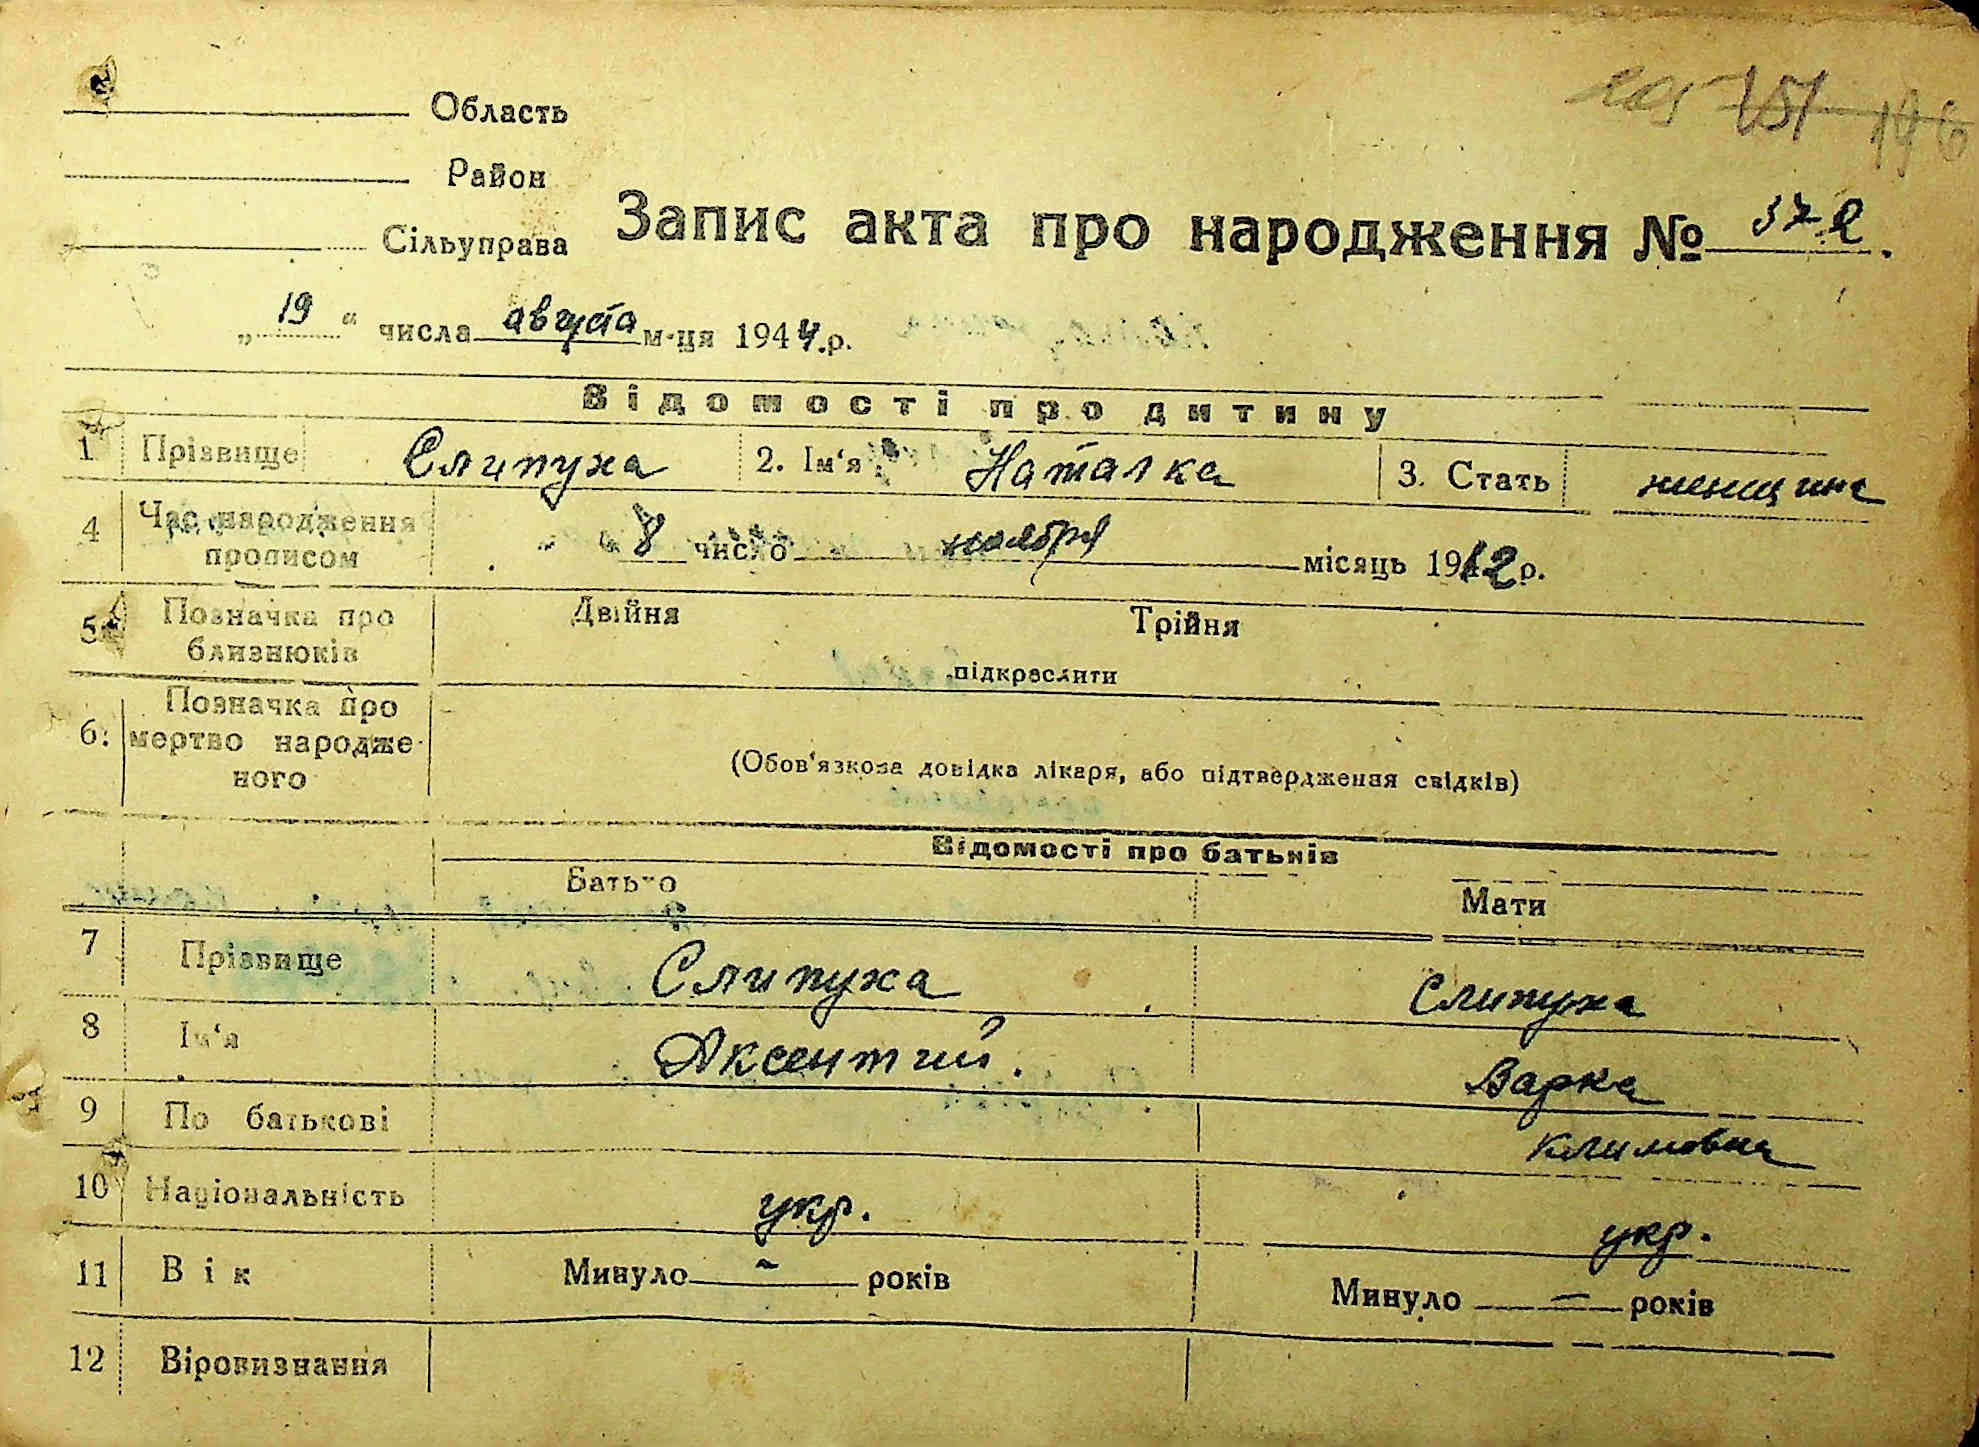 Область
Район
Сільуправа
Запис акта про народження № 372.
„ 19 “ числа августа м-ця 1944.р.
Відомості про дитину
1 Прізвище Слипуха 2. Ім‘я Наталка 3. Стать женщина
4 Час народження прописом 8 число ноября місяць 1942 р.
5 Позначка про близнюків Двійня Трійня
підкреслити
6. Позначка про мертво народже-
ного
(Обов'язкова довідка лікаря, або підтвердження свідків)
Відомості про батьків
Батько Мати
7 Прізвище Слипуха Слипуха
8 Ім‘я Аксентий. Варка
9 По батькові Климовна
10 Національність укр. укр.
11 Вік Минуло – років Минуло – років
12 Віровизнання